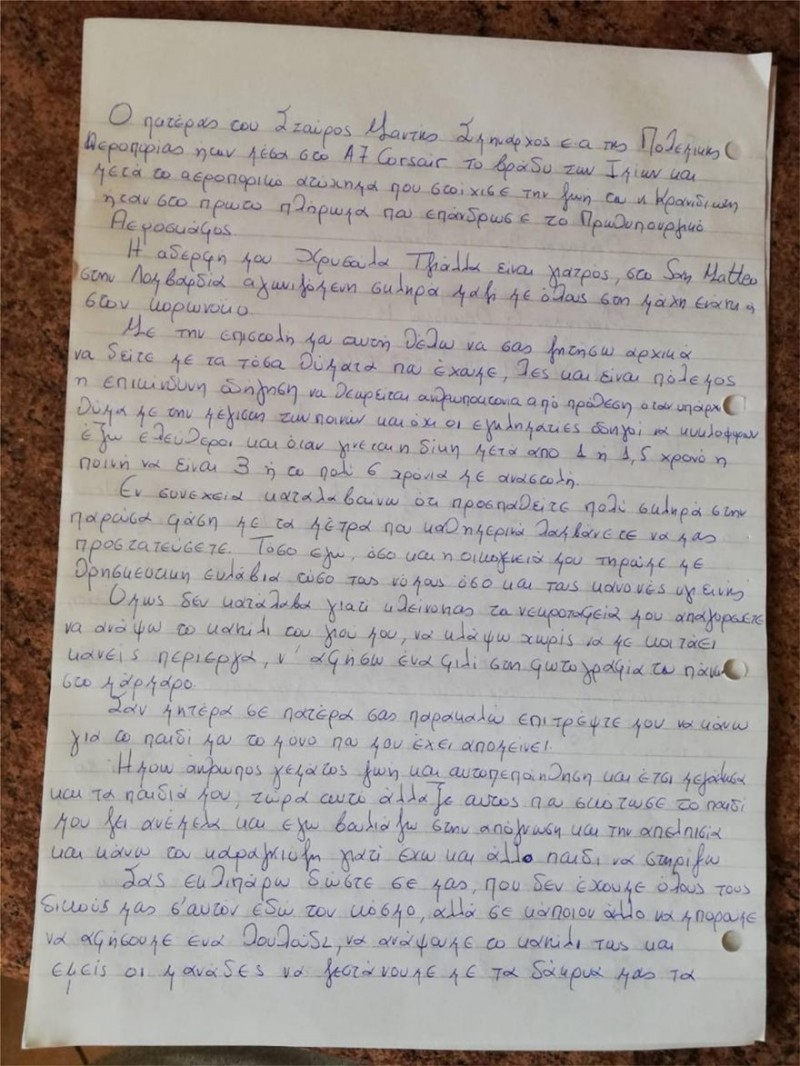 Ο πατέρας του Σταύρος Μαντής Σμηναρχος ε.α της Πολεμικης
Αεροπορίας ήταν μέσα στο Α7 Corsair το βράδυ των Ιμίων και
μετά το αεροπορικο ατύχημα που στοίχισε την ζωη του κ Κρανιδιωτη
ήταν στο πρωτο πλήρωμα που επάνδρωσε το Πρωθυπουργικό
Αεροσκάφος
Η αδερφη μου Χρυσαλα Τζιάλλα είναι γιατρός, στο San Matteo
στην Λομβαρδία αγωνιζόμενη σκληρα μαζι με όλους στη μάχη ενάντια
στον κορωνοιο.
Με την επιστολη μου αυτή θέλω να σας ζητησω αρχικά
να δείτε με τα τόσα θύματα που έχουμε, λες και είναι πόλεμος
η επικίνδυνη οδήγηση να θεωρείται ανθρωποκτονια από πρόθεση οταν υπάρχει
θύμα με την μεγιστη των ποινών και όχι οι εγκληματίες οδηγοί να κυκλοφορουν
έξω ελευθεροι και όταν γινεται η δίκη μετα από 1 ή 1,5 χρονο η
ποινή να είναι 3 ή το πολύ 5 χρόνια με αναστολή.
Εν συνεχεία καταλαβαινω ότι προσπαθείτε πολύ σκληρά στην
παρούσα φάση με τα μέτρα που καθημερινά λαμβάνετε να μας
προστατεύσετε. Τόσο εγω, όσο και η οικογένειά μου τηρούμε με
θρησκευτικη ευλάβια τόσο τους νόμους όσο και τους κανονές υγιεινής
Όμως δεν κατάλαβα γιατί κλείνοντας τα νεκροταφεία μου απαγορεύετε
να ανάψω το καντήλι του γιου μου, να κλάψω χωρίς να με κοιτάει
κανείς περιεργα, ν' αφήσω ένα φιλί στη φωτογραφία του πάνω
στο μάρμαρο.
Σαν μητέρα σε πατέρα σας παρακαλώ επιτρέψτε μου να κάνω
για το παιδί μου το μονο που μου έχει απομείνει.
Ήμουν άνθρωπος γεμάτος ζωη και αυτοπεποίθηση και έτσι μεγάλωσα
και τα παιδιά μου, τώρα αυτό άλλαξε αυτος που σκότωσε το παιδί
μου ζει ανέμελα και εγω βουλιάζω στην απόγνωση και την απελπισία
και κάνω τον καραγκιόζη γιατί έχω και άλλο παιδί να στηρίξω
Σας εκλιπάρω δώστε σε μας, που δεν έχουμε όλους τους
δικούς μας σ'αυτόν εδώ τον κόσμο, αλλά σε κάποιον άλλο να μπορούμε
να αφήσουμε ένα λουλούδι, να ανάψουμε το καντήλι τους και
εμείς οι μανάδες να ζεστάνουμε με τα δάκρυά μας τα